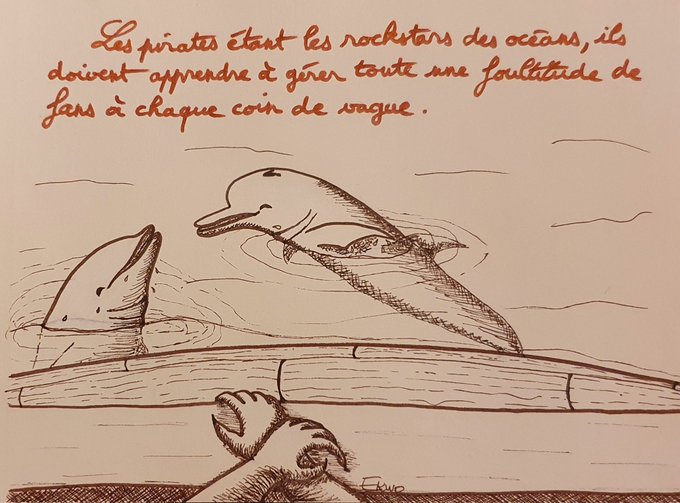 Les pirates étant les rockstars des océans, ils
doivent apprendre à gérer toute une foultitude de
fans à chaque coin de vague.
EKWO